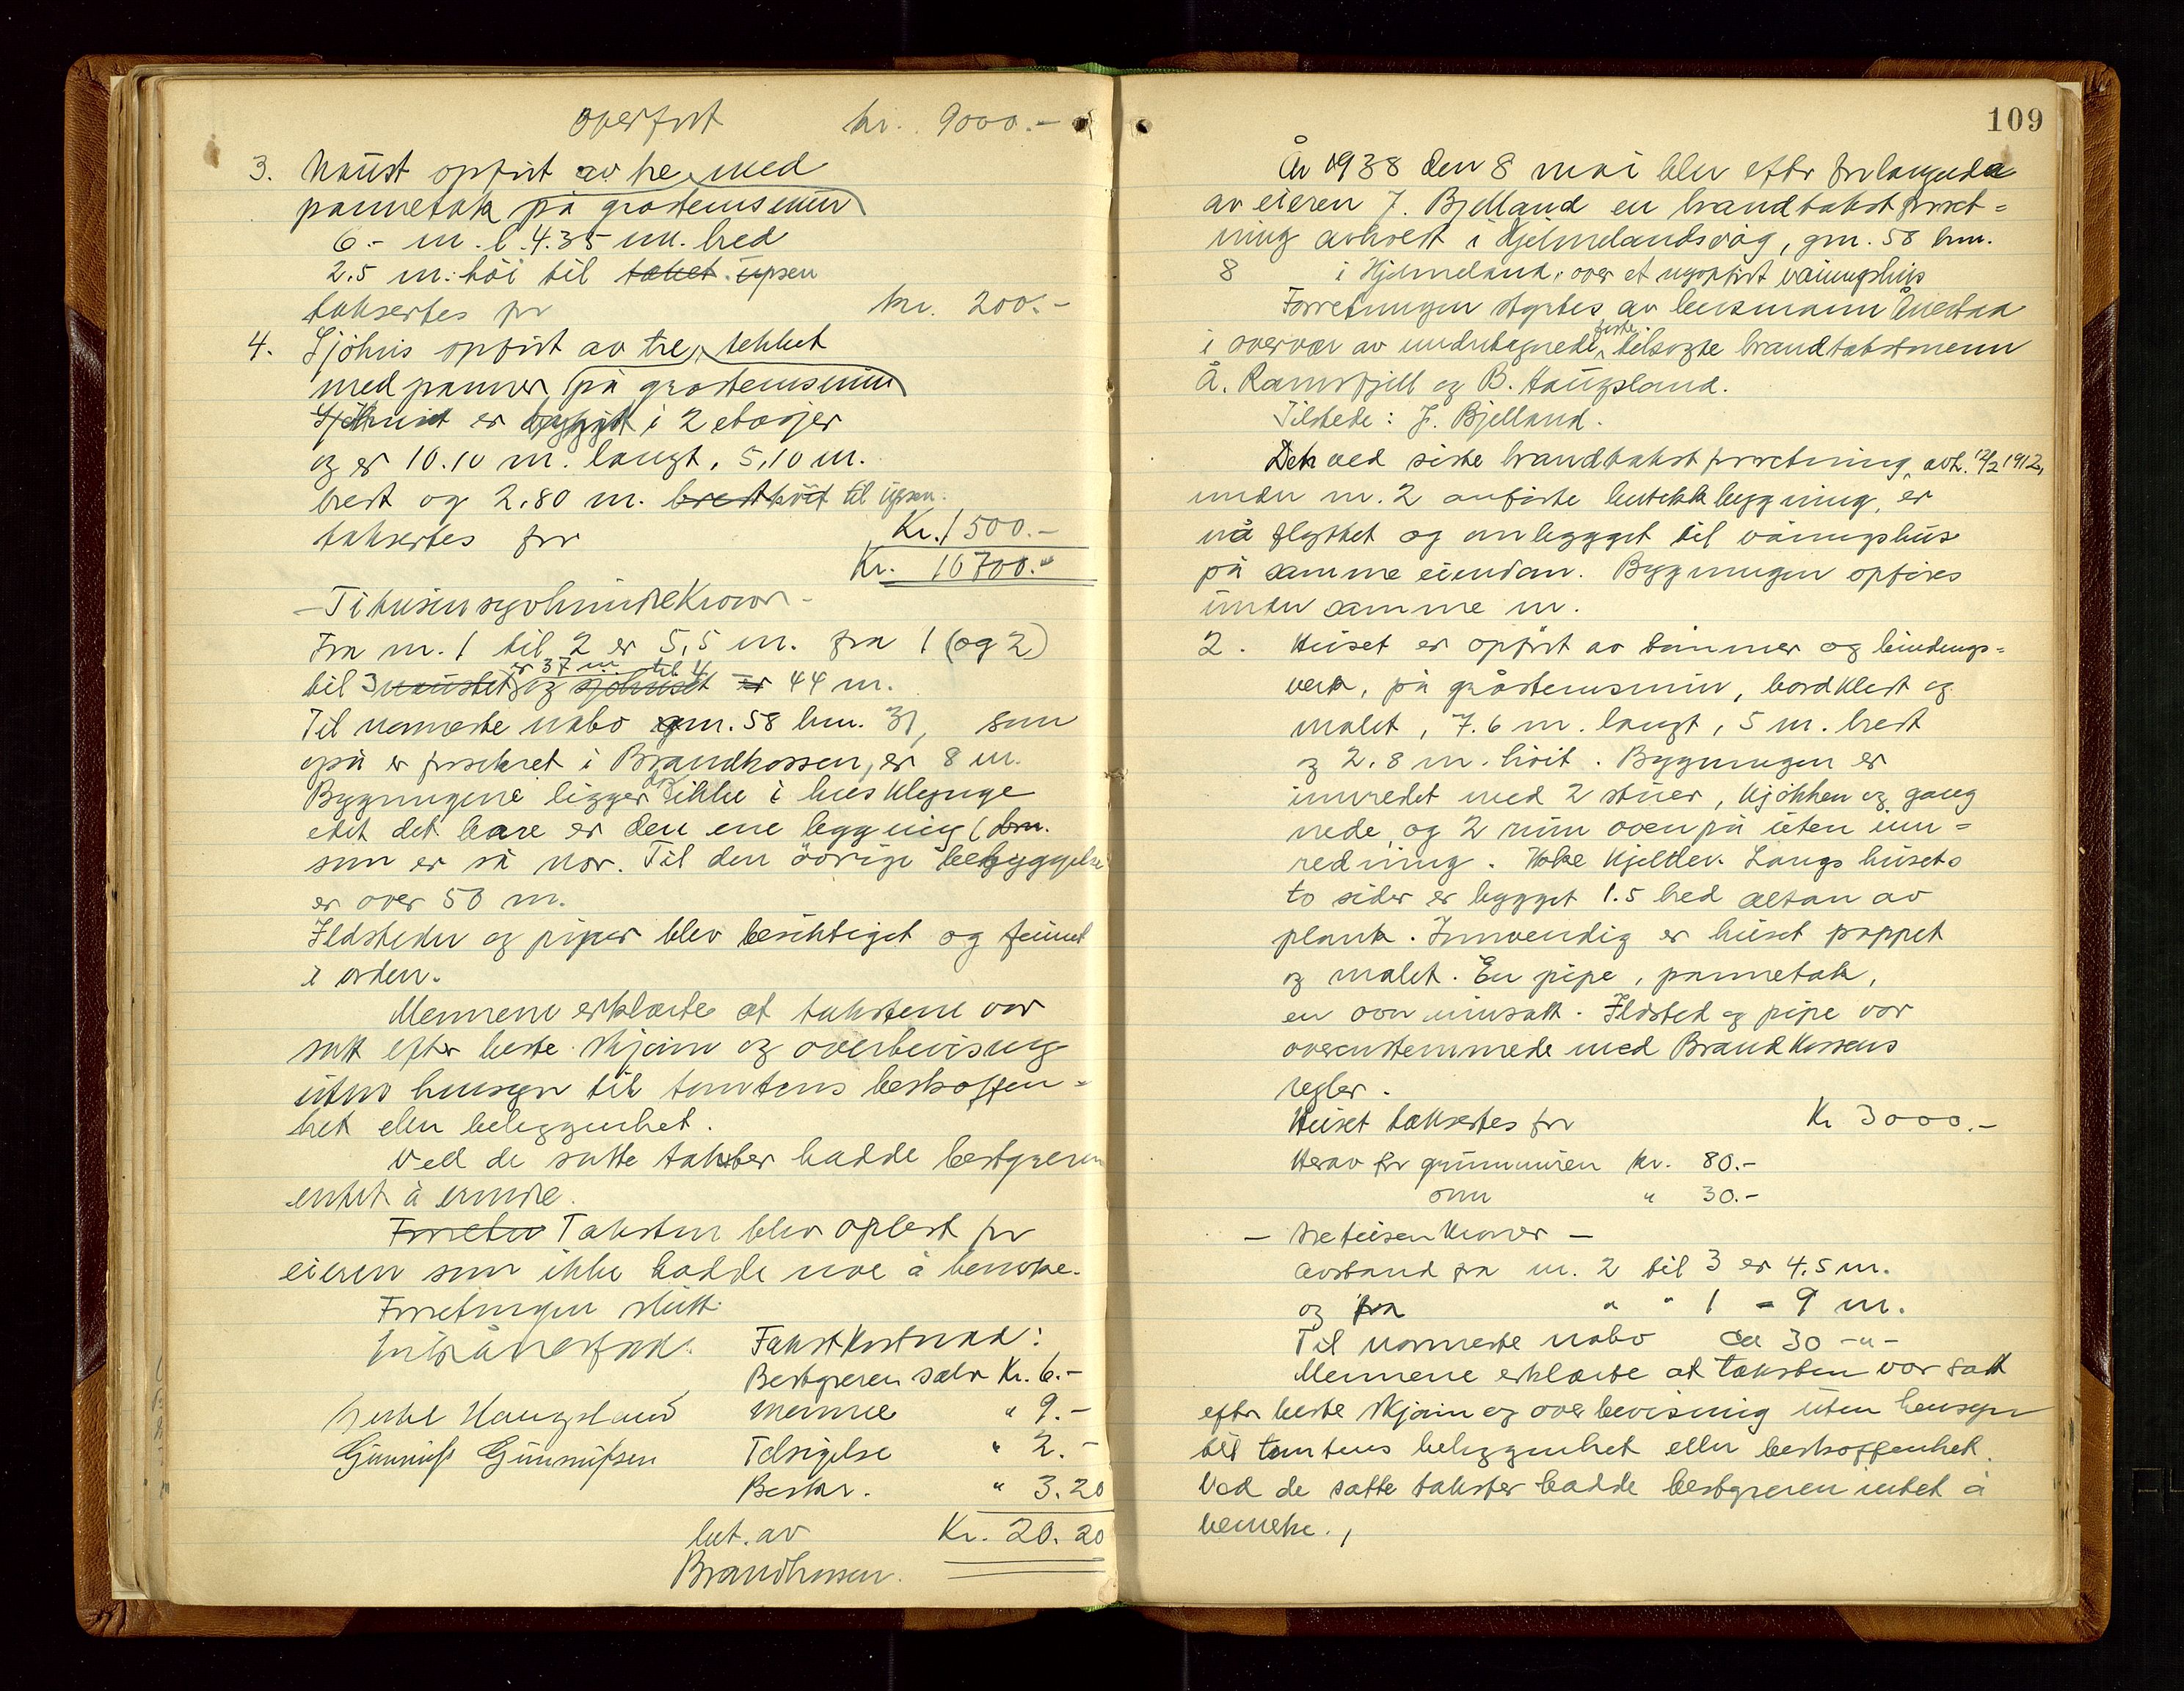 overført kr. 9000.-
3. Naust opført av tre, med
pannetak på gråstensmur
6.- m. l. 4.35 m. bred
2.5 m. höi til taket. upsen
taksertes for kr. 200.-
4. Sjöhus opført av tre, tekket
med panner, på gråstensmur
Sjöhuset er bygget i 2 etasjer
og er 10.10 m. langt, 5,10 m.
bredt og 2.80 m. bredt höit til upsen.
taksertes for Kr. 1500.-
Kr. 10700.-
- Titusensyvhundre Kroner -
Fra nr. 1 til 2 er 5,5 m. fra 1 (og 2)
er 37 m til 4
til 3 naustet og sjöhuset er 44 m.
Til nærmeste nabo gnr. 58 bnr. 31, som
også er forsikret i Brandkassen, er 8 m.
Bygningene ligger ikke i husklynge
idet det bare er den ene bygning (bnr.
som er så nær. Til den övrige bebyggelse
er over 50 m.
Ildsteder og piper blev besiktiget og funnet
i orden.
Mennene erklærte at takstene var
satt efter beste skjönn og overbevisning
uten hensyn til tomtens beskaffen=
het eller beliggenhet.
Ved de satte takster hadde bestyreren
intet å erindre.
Forretn Taksten blev oplest for
eieren som ikke hadde noe å bemerke.
Forretningen slutt.
Takstkostnad:
Bestyreren sælv Kr. 6.-
Haugsland mennene " 9.-
Gunnulf Gunnulfsen Tilsigelse " 2.-
Beskr. " 3.20
bet. av Kr. 20.20
Brandkassen.
109
År 1938 den 8 mai blev efter forlangende
av eieren J. Bjelland en brandtakstforret=
ning avholdt i Hjelmelandsvåg, gnr. 58 bnr.
8 i Hjelmeland, over et nyopført våningshus
Forretningen styrtes av lensmann Ånestad
faste
i overvær av undertegnede, tilsagte brandtakstmenn
Å. Ramsfjell og B. Haugsland.
Tilstede: J. Bjelland.
Den ved siste brandtakstforretning, avh. 12/2 1912,
under nr. 2 anførte butikkbygning, er
nå flyttet og ombygget til våningshus
på samme eiendom. Bygningen opføres
under samme nr.
2. Huset er opført av tømmer og bindings=
verk, på gråstensmur, bordkledt og
malet, 7.6 m. langt, 5 m. bredt
og 2.8 m. höit. Bygningen er
innredet med 2 stuer, kjökken og gang
nede, og 2 rum ovenpå uten inn=
redning. Ikke kjeller. Langs husets
to sider er bygget 1.5 bred altan av
plank. Innvendig er huset pappet
og malet. En pipe, pannetak,
en ovn innsatt. Ildsted og pipe var
overenstemmede med Brandkassens
regler.
Huset taksertes for Kr 3000.-
Herav for grunnmuren kr. 80.-
ovn " 30.-
- tretusen Kroner -
Avstand fra nr. 2 til 3 er 4.5 m.
og fra " " 1 - 9 m.
Til nærmeste nabo ca 30 -"-
Mennene erklærte at taksten var satt
efter beste skjönn og overbevisning uten hensyn
til tomtens beliggenhet eller beskaffenhet.
Ved de satte takster hadde bestyreren intet å
bemerke.,